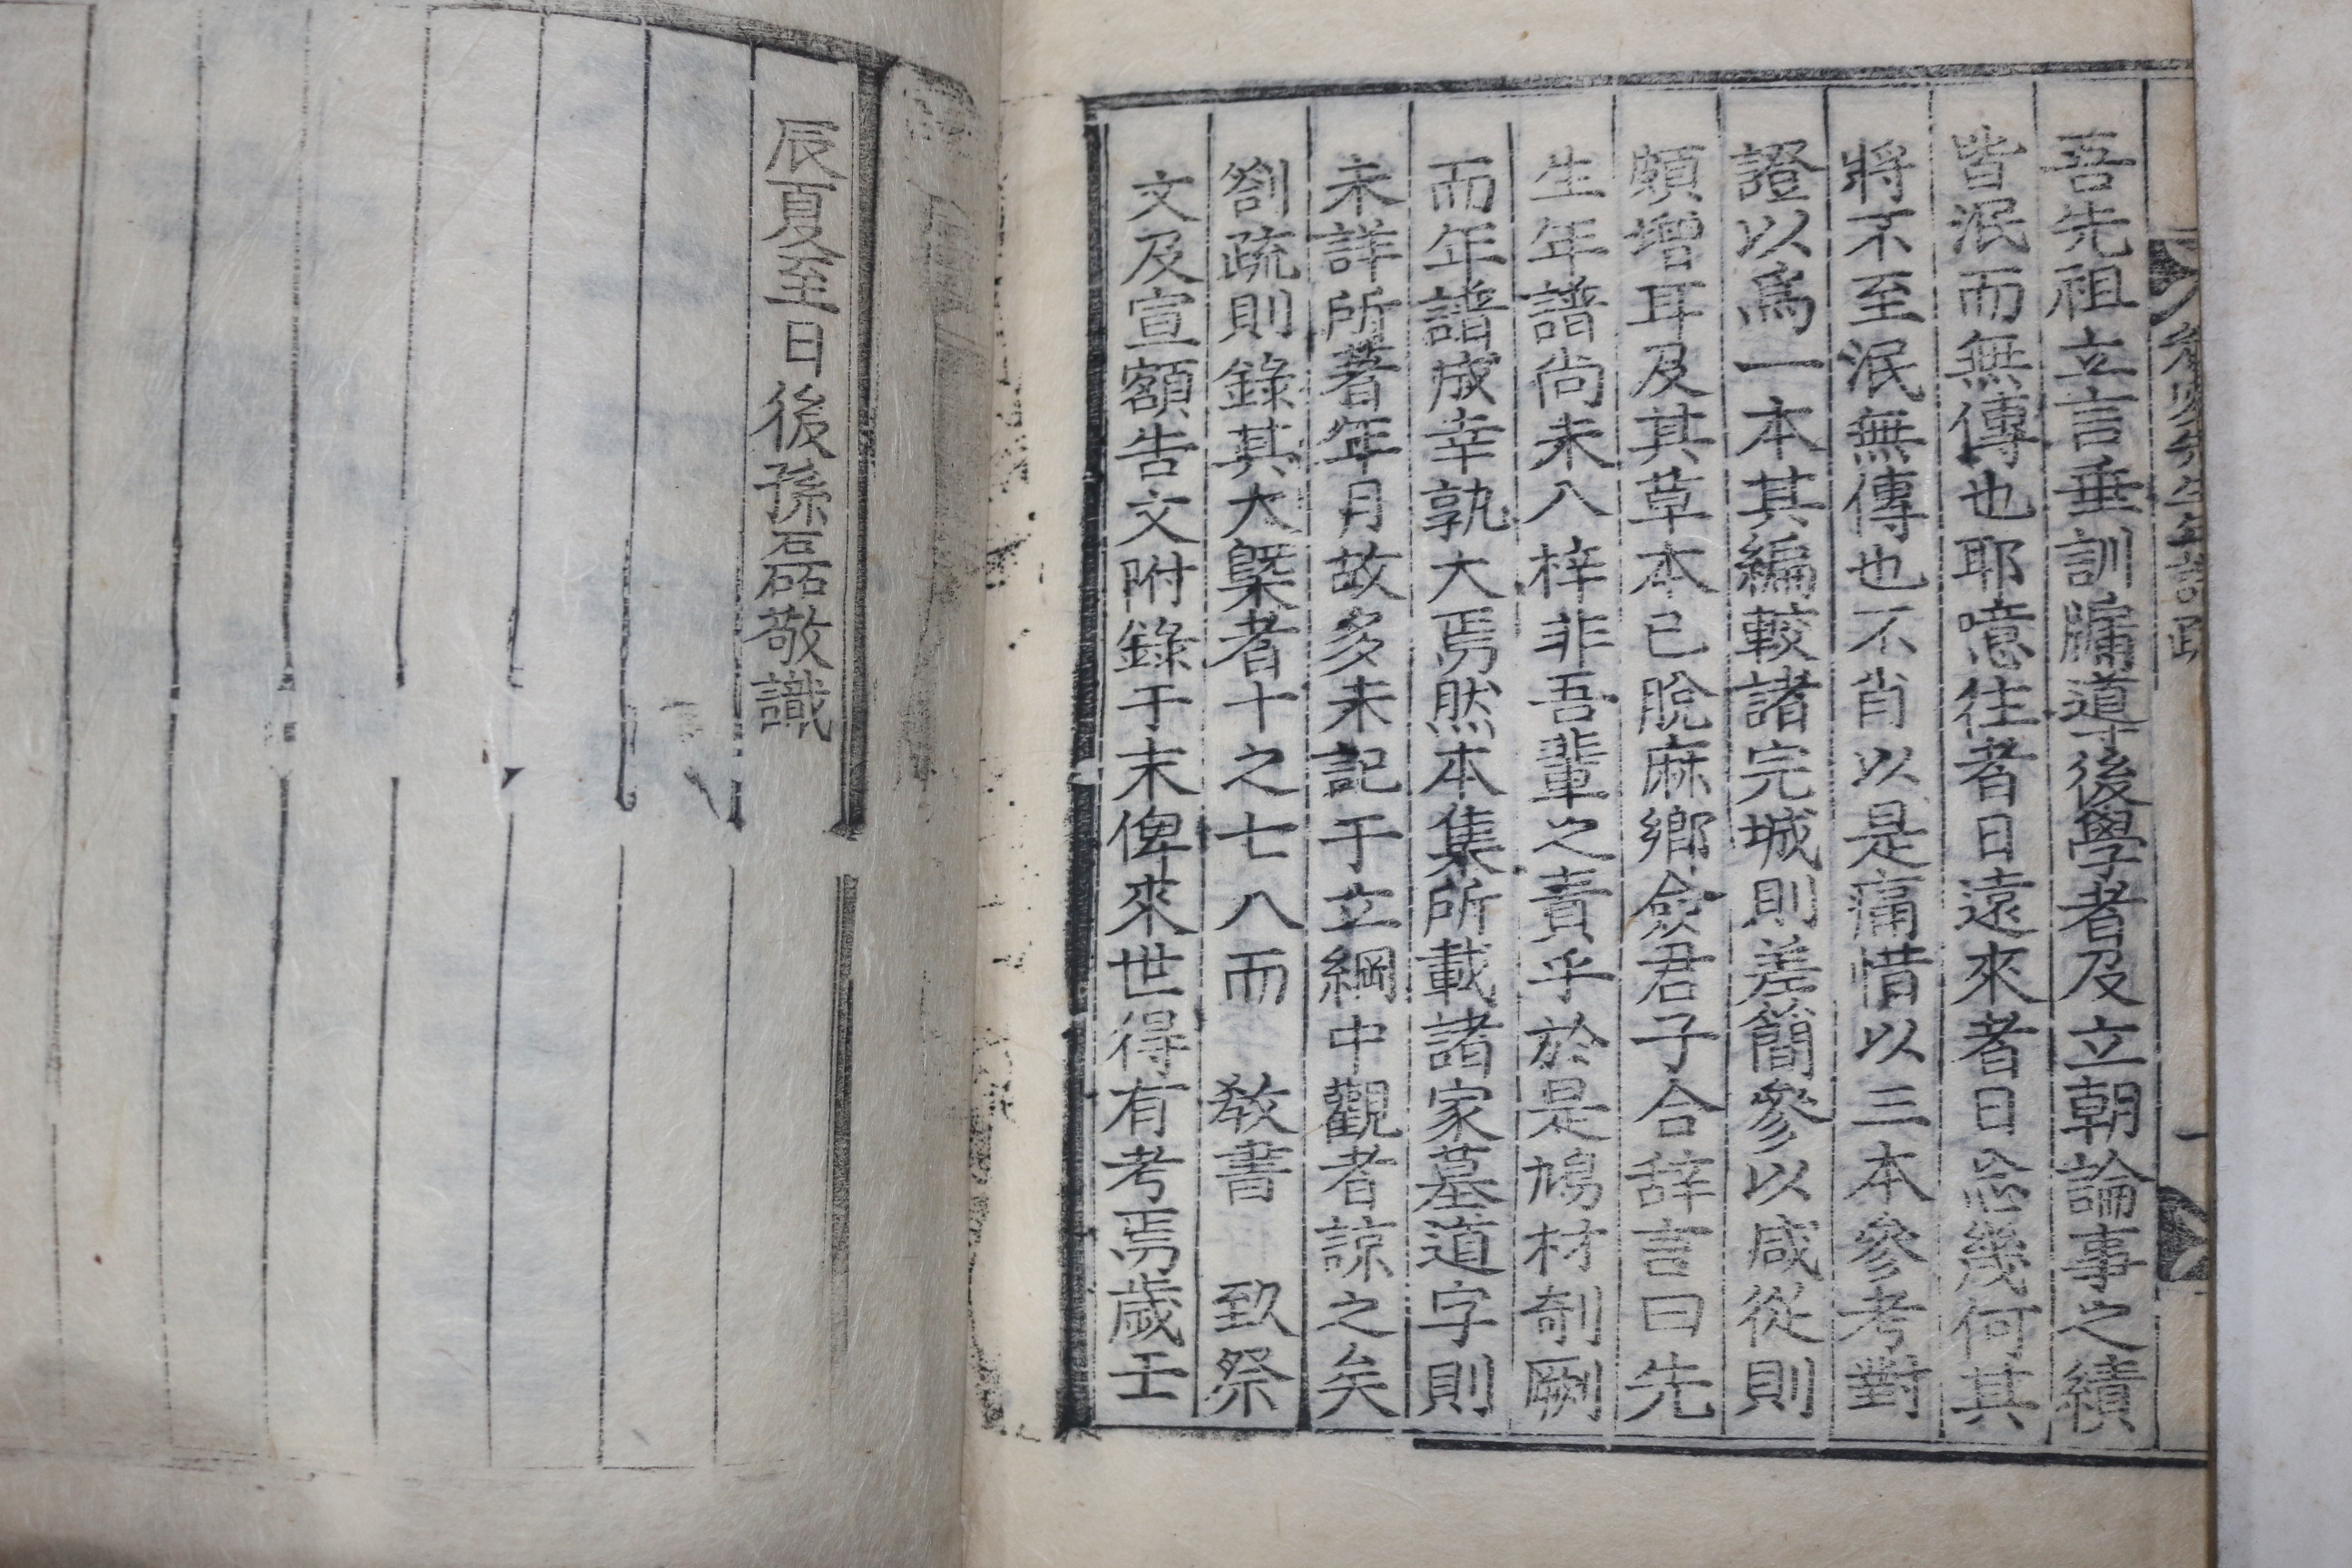 吾先祖立言垂訓牖道後學者及立朝論事之績
皆泯而無傳也耶噫往者日遠來者日忩幾何其
將不至泯無傳也不肖以是痛惜以三本參考對
證以爲一本其編較諸完城則差簡參以咸從則
頗增耳及其草本已脫麻鄕僉君子合辭言曰先
生年譜尚未入梓非吾輩之責乎於是鳩材剞劂
而年譜成幸孰大焉然本集所載諸家墓道字則
未詳所著年月故多未記于立綱中觀者諒之矣
劄疏則錄其大槩者十之七八而 敎書 致祭
文及宣額告文附錄于末俾來世得有考焉歲壬
辰夏至日後孫磊敬識
先生年譜
一